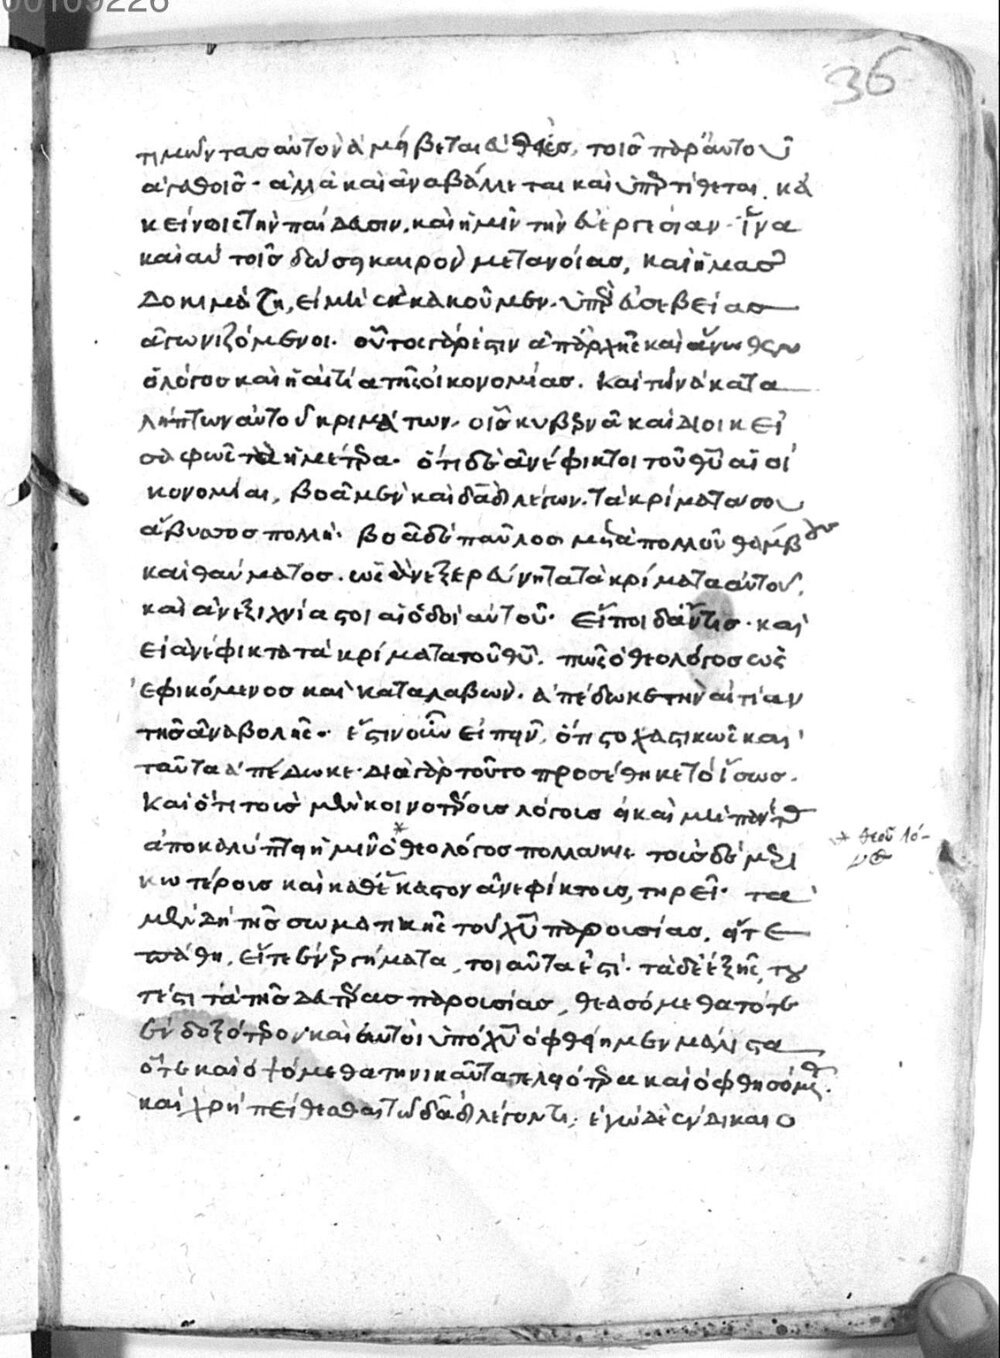 00109226
36
τιμῶντας αὐτὸν ἀμείβεται εὐθέως, τοῖς παρ' αὐτοῦ
ἀγαθοῖς· ἀλλὰ καὶ ἀναβάλλεται καὶ ὑπερτίθεται
κείνοις τὴν παίδευσιν, καὶ ἡμῖν τὴν εὐεργεσίαν· ἵνα
καὶ αὐτοῖς δώσῃ καιρὸν μετανοίας, καὶ ἡμᾶς
δοκιμάζῃ, εἰ μὴ ἐκκακοῦμεν ὑπὲρ εὐσεβείας
ἀγωνιζόμενοι· οὗτος γάρ ἐστιν ἀπ' ἀρχῆς καὶ ἄνωθεν
ὁ λόγος καὶ ἡ αἰτία τῆς οἰκονομίας. καὶ τῶν ἀκατα
λήπτων αὐτοῦ κριμάτων· οἷς κυβερνᾷ καὶ διοικεῖ
σαφῶς τὰ ἡμέτερα· ὅτι δὲ ἀνέφικτοι τοῦ θυ αἱ οἰ
κονομίαι, βοᾷ μὲν καὶ δαδ λέγων· τὰ κρίματά σου
ἄβυσσος πολλή· βοᾷ δὲ παῦλος μετὰ πολλοῦ θάμβους
καὶ θαύματος· ὡς ἀνεξερεύνητα τὰ κρίματα αὐτοῦ,
καὶ ἀνεξιχνίαστοι αἱ ὁδοὶ αὐτοῦ· εἴποι δ' ἄν τις· καὶ
εἰ ἀνέφικτα τὰ κρίματα τοῦ θυ, πῶς ὁ θεολόγος ὡς
ἐφικόμενος καὶ καταλαβὼν· ἀπέδωκε τὴν αἰτίαν
τῆς ἀναβολῆς· ἔστιν οὖν εἰπεῖν, ὅτι στοχαστικῶς καὶ
ταῦτα ἀπέδωκε· διὰ γὰρ τοῦτο προσέθηκε τὸ ἴσως·
καὶ ὅτι τοὺς μὲν κοινοτέρους λόγους εἰ καὶ μὴ πάντας
ἀποκαλύπτει ἡμῖν ὁ* θεολόγος πολλάκις τοὺς δὲ μυστι
κωτέρους καὶ καθ' ἕκαστον ἀνεφίκτους, τηρεῖ· τὰ
μὲν δὴ τῆς σωματικῆς τοῦ χυ παρουσίας, εἴτε
πάθη, εἴτε ἐνεργήματα, τοιαῦτά ἐστι· τὰ δὲ ἑξῆς, του
τέστι τὰ τῆς δευτέρας παρουσίας, θεασόμεθα τότε
ἐνδοξότερον καὶ αὐτοὶ ὑπὸ χυ ὀφθείημεν μάλιστα
ὅτε καὶ ὀψόμεθα τηνικαῦτα τελεώτερα καὶ ὀφθησόμεθα·
καὶ χρὴ πείθεσθαι τῷ δαδ λέγοντι, ἐγὼ δὲ ἐν δικαιο
* θεοῦ λό-
γος